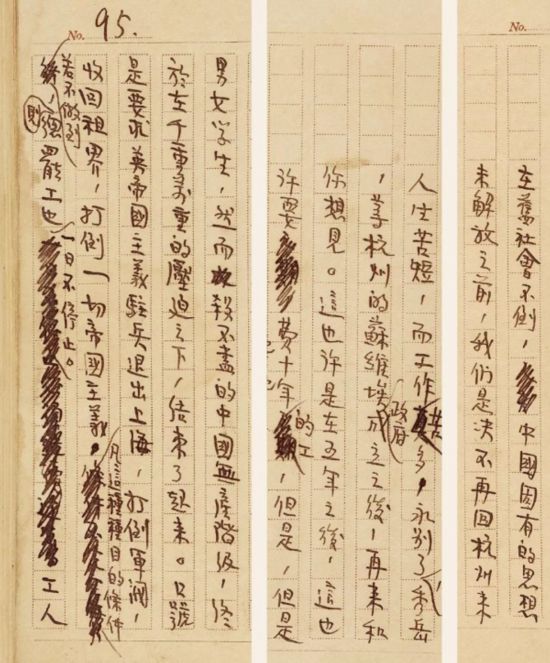 No.
在舊社會不倒，中國固有的思想
未解放之前，我們是決不再回杭州来
人生苦短，而工作苦多，永別了秀岳
，等杭州的蘇維埃政府成立之後，再来和
你想見。這也許是在五年之後，這也
許要費十年的工，但是，但是
No. 95.
男女学生，然而殺不盡的中國無産階級，终
於在千重萬重的壓迫之下，结束了起来。口號
是要求英帝國主義駐兵退出上海，打倒軍閥，
收回租界，打倒一切帝國主義，凡這種種目的條件
若不做到，則總罷工也一日不停止。工人